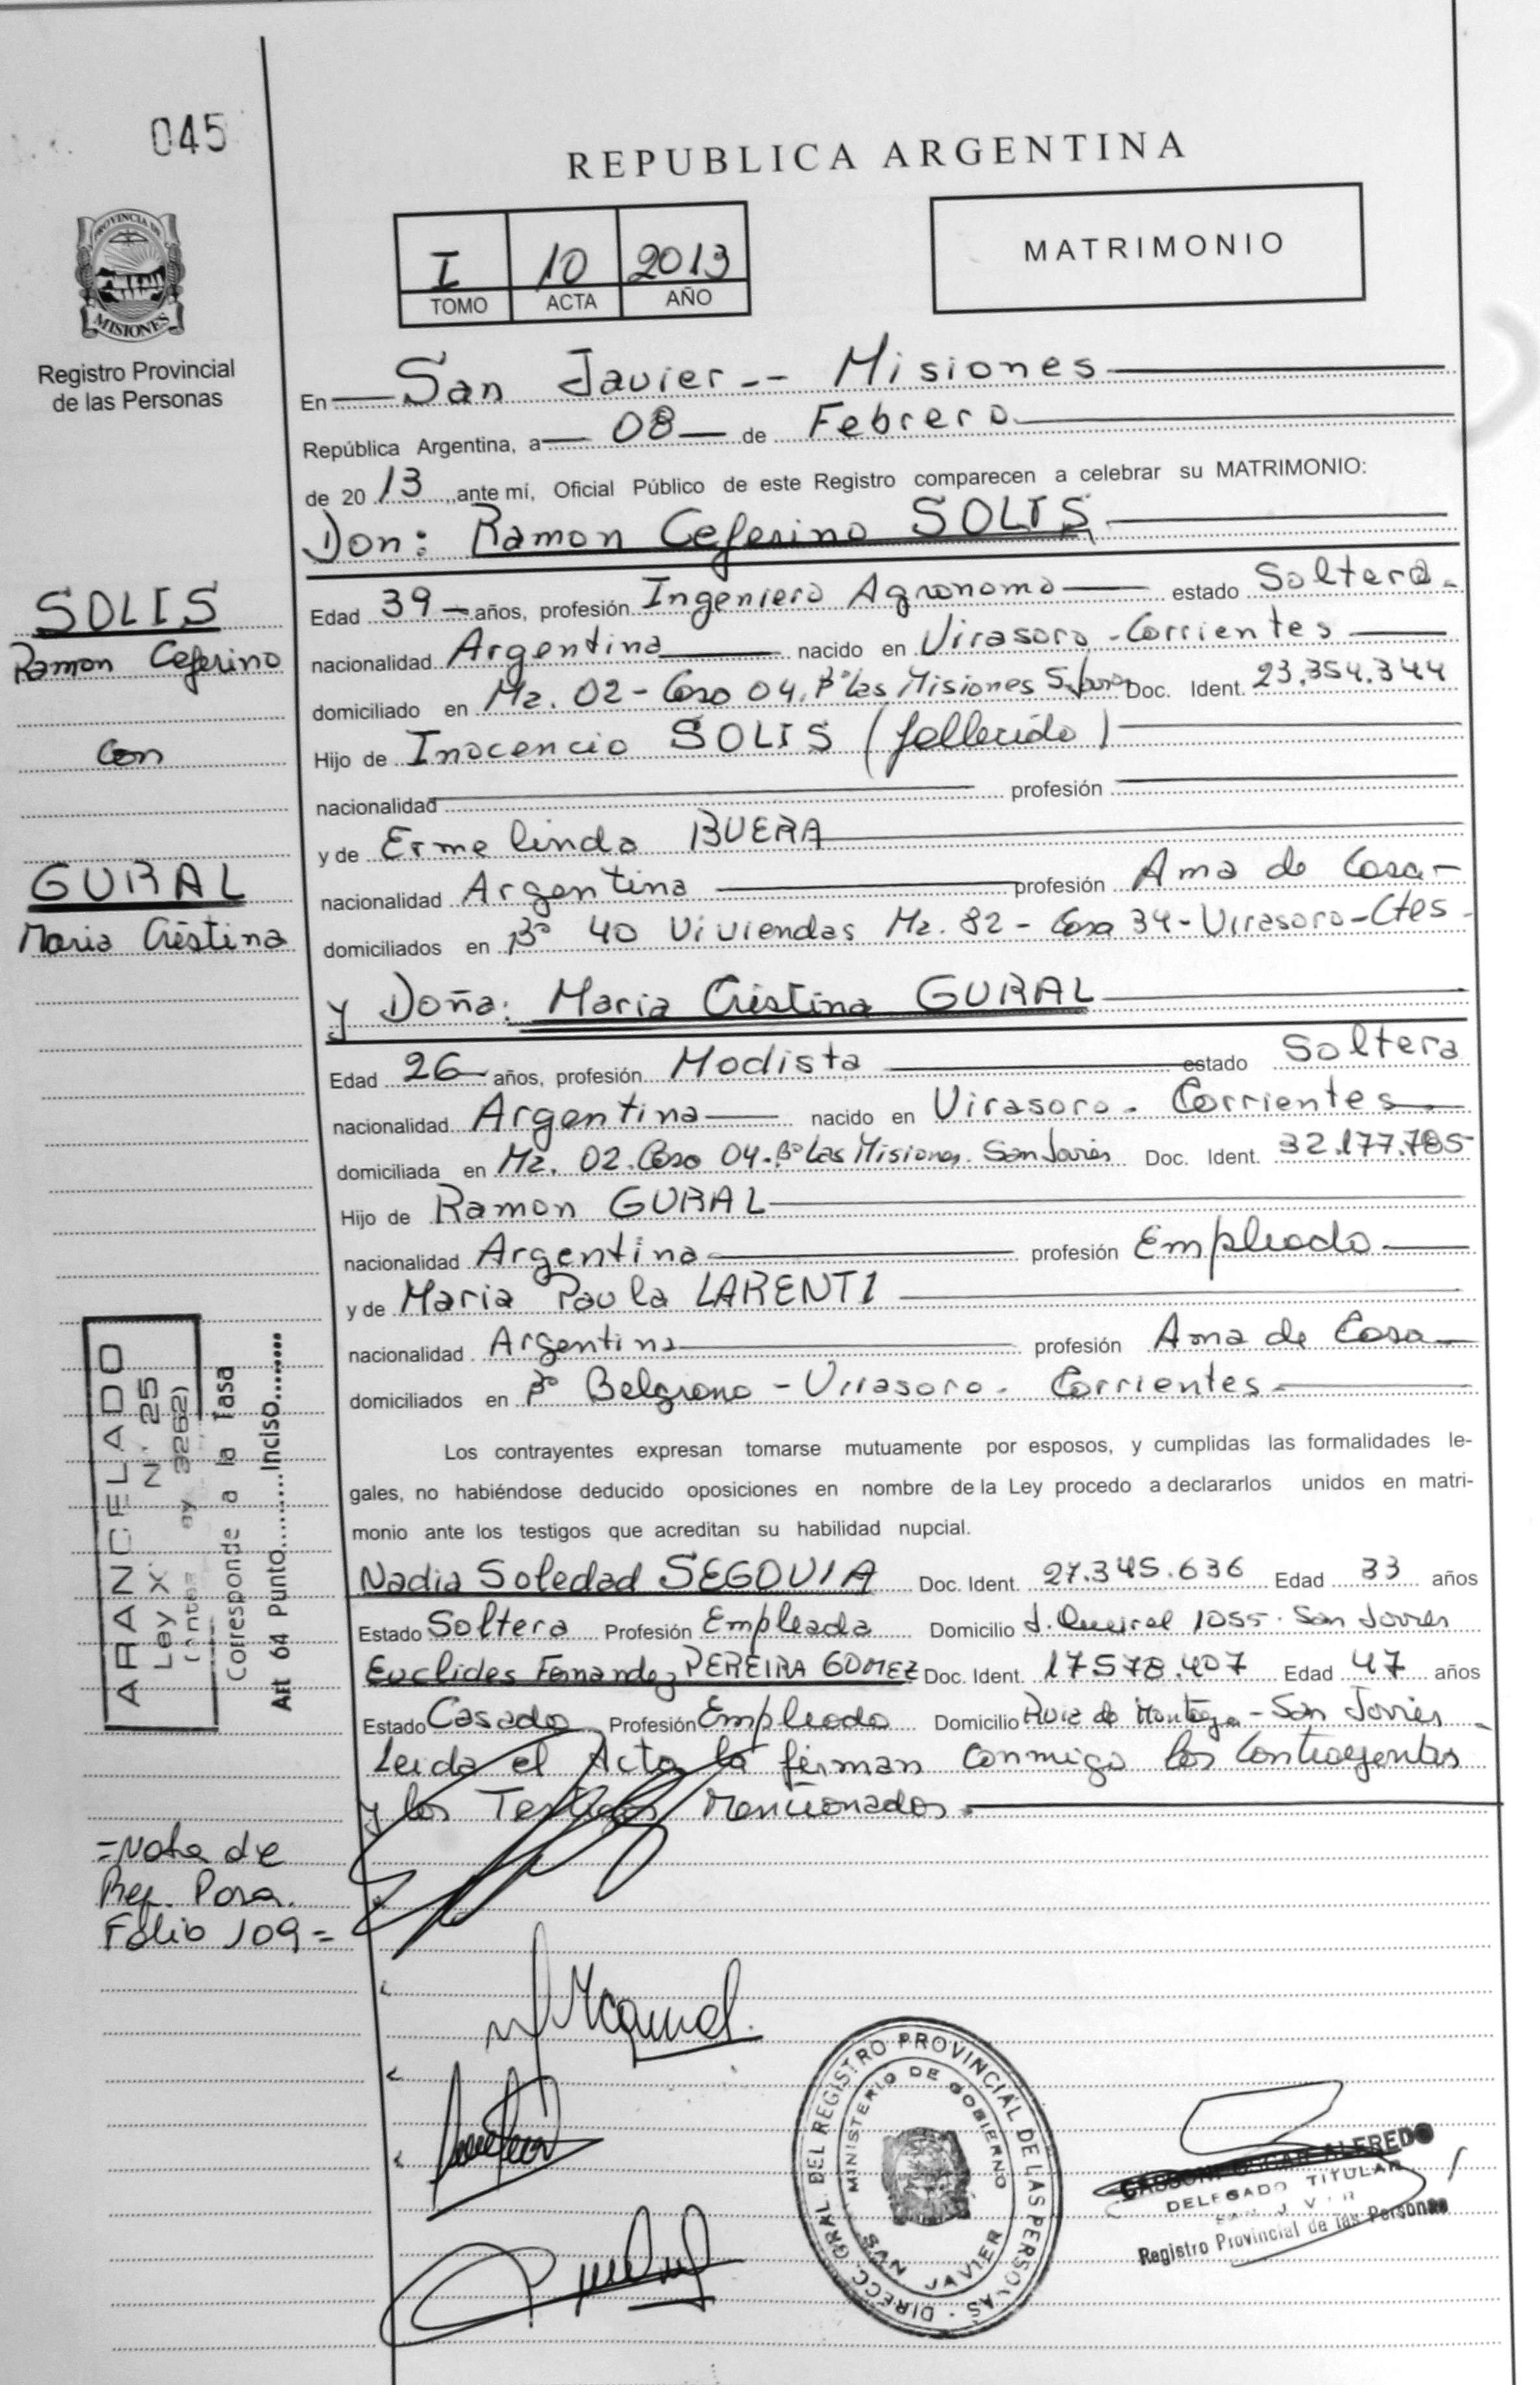 045
REPUBLICA ARGENTINA
PROVINCIA DE
MISIONES
Registro Provincial
de las Personas
I 10 2013
TOMO ACTA AÑO
MATRIMONIO
En San Javier -- Misiones
República Argentina, a 08 de Febrero
de 20 13 ,ante mí, Oficial Público de este Registro comparecen a celebrar su MATRIMONIO:
Don: Ramon Ceferino SOLIS
SOLIS
Ramon Ceferino
con
GURAL
Maria Cristina
Edad 39 años, profesión Ingeniero Agronomo estado Soltero
nacionalidad Argentina nacido en Virasoro - Corrientes
domiciliado en Mz. 02 - Casa 04. B° Las Misiones S. Doc. Ident. 23.354.344
Hijo de Inocencio SOLIS (fallecido)
nacionalidad profesión
y de Ermelinda BUERA
nacionalidad Argentina profesión Ama de Casa -
domiciliados en B° 40 Viviendas Mz. 82 - Casa 34 - Virasoro - Ctes -
y Doña: Maria Cristina GURAL
Edad 26 años, profesión Modista estado Soltera
nacionalidad Argentina nacido en Virasoro - Corrientes
domiciliada en Mz. 02. Casa 04. B° Las Misiones. San Javier Doc. Ident. 32.177.785
Hijo de Ramon GURAL
nacionalidad Argentina profesión Empleado
y de Maria Paula LARENTI
nacionalidad Argentina profesión Ama de Casa
domiciliados en B° Belgrano - Virasoro - Corrientes
Los contrayentes expresan tomarse mutuamente por esposos, y cumplidas las formalidades le-
gales, no habiéndose deducido oposiciones en nombre de la Ley procedo a declararlos unidos en matri-
monio ante los testigos que acreditan su habilidad nupcial.
Nadia Soledad SEGOVIA Doc. Ident. 27.345.636 Edad 33 años
Estado Soltera Profesión Empleada Domicilio J. Queirel 1055 - San Javier
Euclides Fernandez PEREIRA GOMEZ Doc. Ident. 17578.407 Edad 47 años
Estado Casado Profesión Empleado Domicilio Ruiz de Montoya - San Javier
Leida el Acta, la firman conmigo los Contrayentes
y los Testigos mencionados.
ARANCELADO
Ley X N° 25
3262)
Corresponde a la Tasa
Art 64 Punto........Inciso........
=Nota de
Ref. Pora.
Folio 109=
DIRECC. GRAL. DEL REGISTRO PROVINCIAL DE LAS PERSONAS
MINISTERIO DE GOBIERNO
SAN JAVIER
OSCAR ALFREDO
DELEGADO TITULAR
Registro Provincial de las Personas